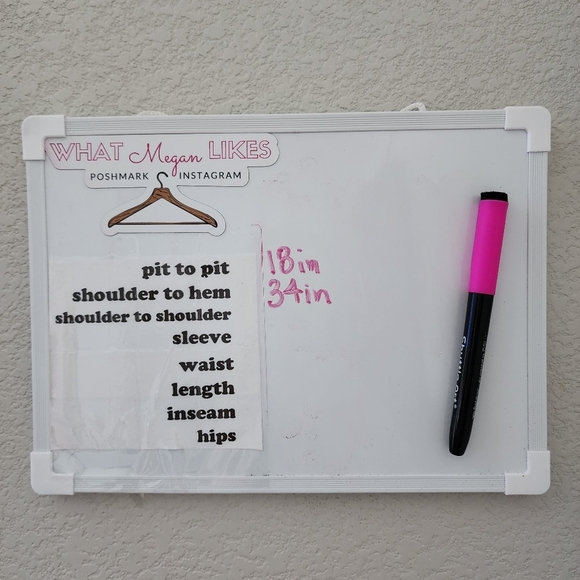 WHAT Megan LIKES
POSHMARK INSTAGRAM
pit to pit 18in
shoulder to hem 34in
shoulder to shoulder
sleeve
waist
length
inseam
hips